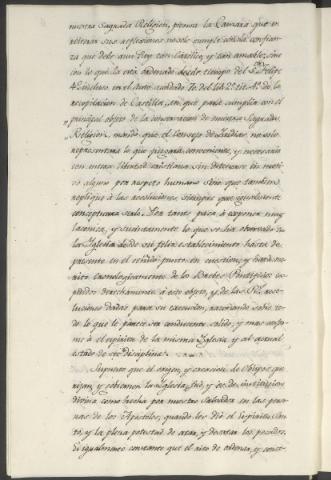 nuestra Sagrada Religion, piensa la Camara que
sus reflexiones no solo cumple con la confian-
za que debe aun Rey tan Catolico, y tan amable, sino
con lo que la está ordenado desde tiempo del Sr. Felipe
4º en el auto acordado del lib. 2º tit. 4º de la
recopilacion de Castilla, en que para cumplir con el
principal objeto de la conservacion de nuestra Sagrada
Religion, mandó que el Consejo de no solo
representara lo que juzgara conveniente, y necesario
con entera libertad cristiana sin detenerse en moti-
vo alguno por respeto humano sino que tambien
replique á las resoluciones, siempre que
Por tanto pasa á exponer muy
y sucintamente lo que se ha observado en
la Yglesia desde su feliz establecimiento hasta de
presente en el punto en cuestion; y hará me-
rito cronologicamente de los Breves Pontificios ex-
pedidos derechamente á este objeto, y de las Rs. reso-
luciones dadas para su execucion, razonando sobre to-
do lo que le parece ser conducente, solido, y mas confor-
me á el espiritu de la misma Yglesia, y al actual
estado de su disciplina.
Supuesto que el origen, y creacion de Obispos que
rijan, y gobiernen la Yglesia de Dios, es de institucion
divina como hecha por nuestro Salvador en las perso-
nas de los Apostoles, quando les dió el Espiritu San-
to, y la plena potestad de atar, y desatar los pecados,
Es igualmente constante que el rito de ordenar, y